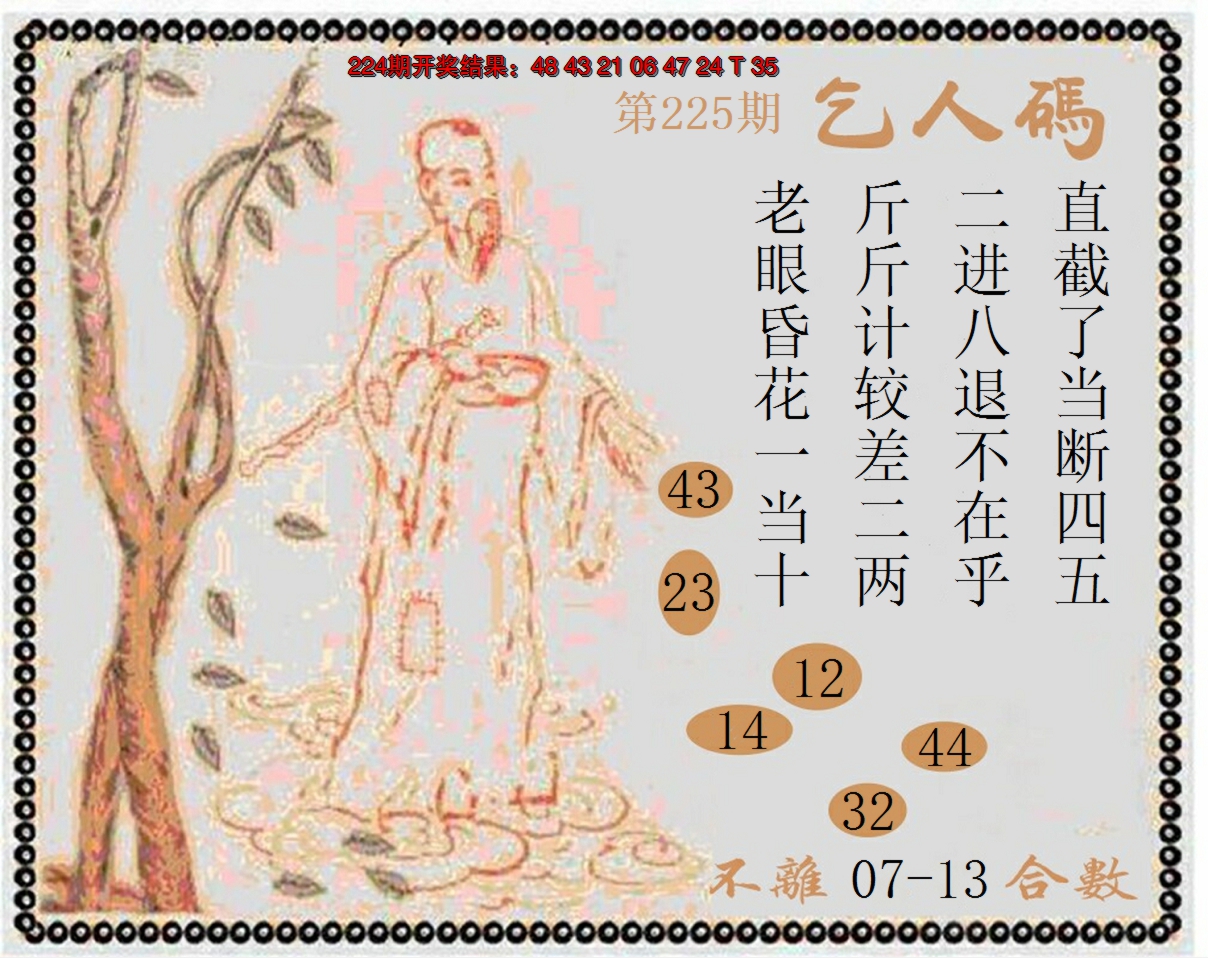 224期开奖结果：48 43 21 06 47 24 T 35
第225期 乞人碼
直截了当断四五
二进八退不在乎
斤斤计较差二两
老眼昏花一当十
43
23
12
14
44
32
不離 07-13 合數